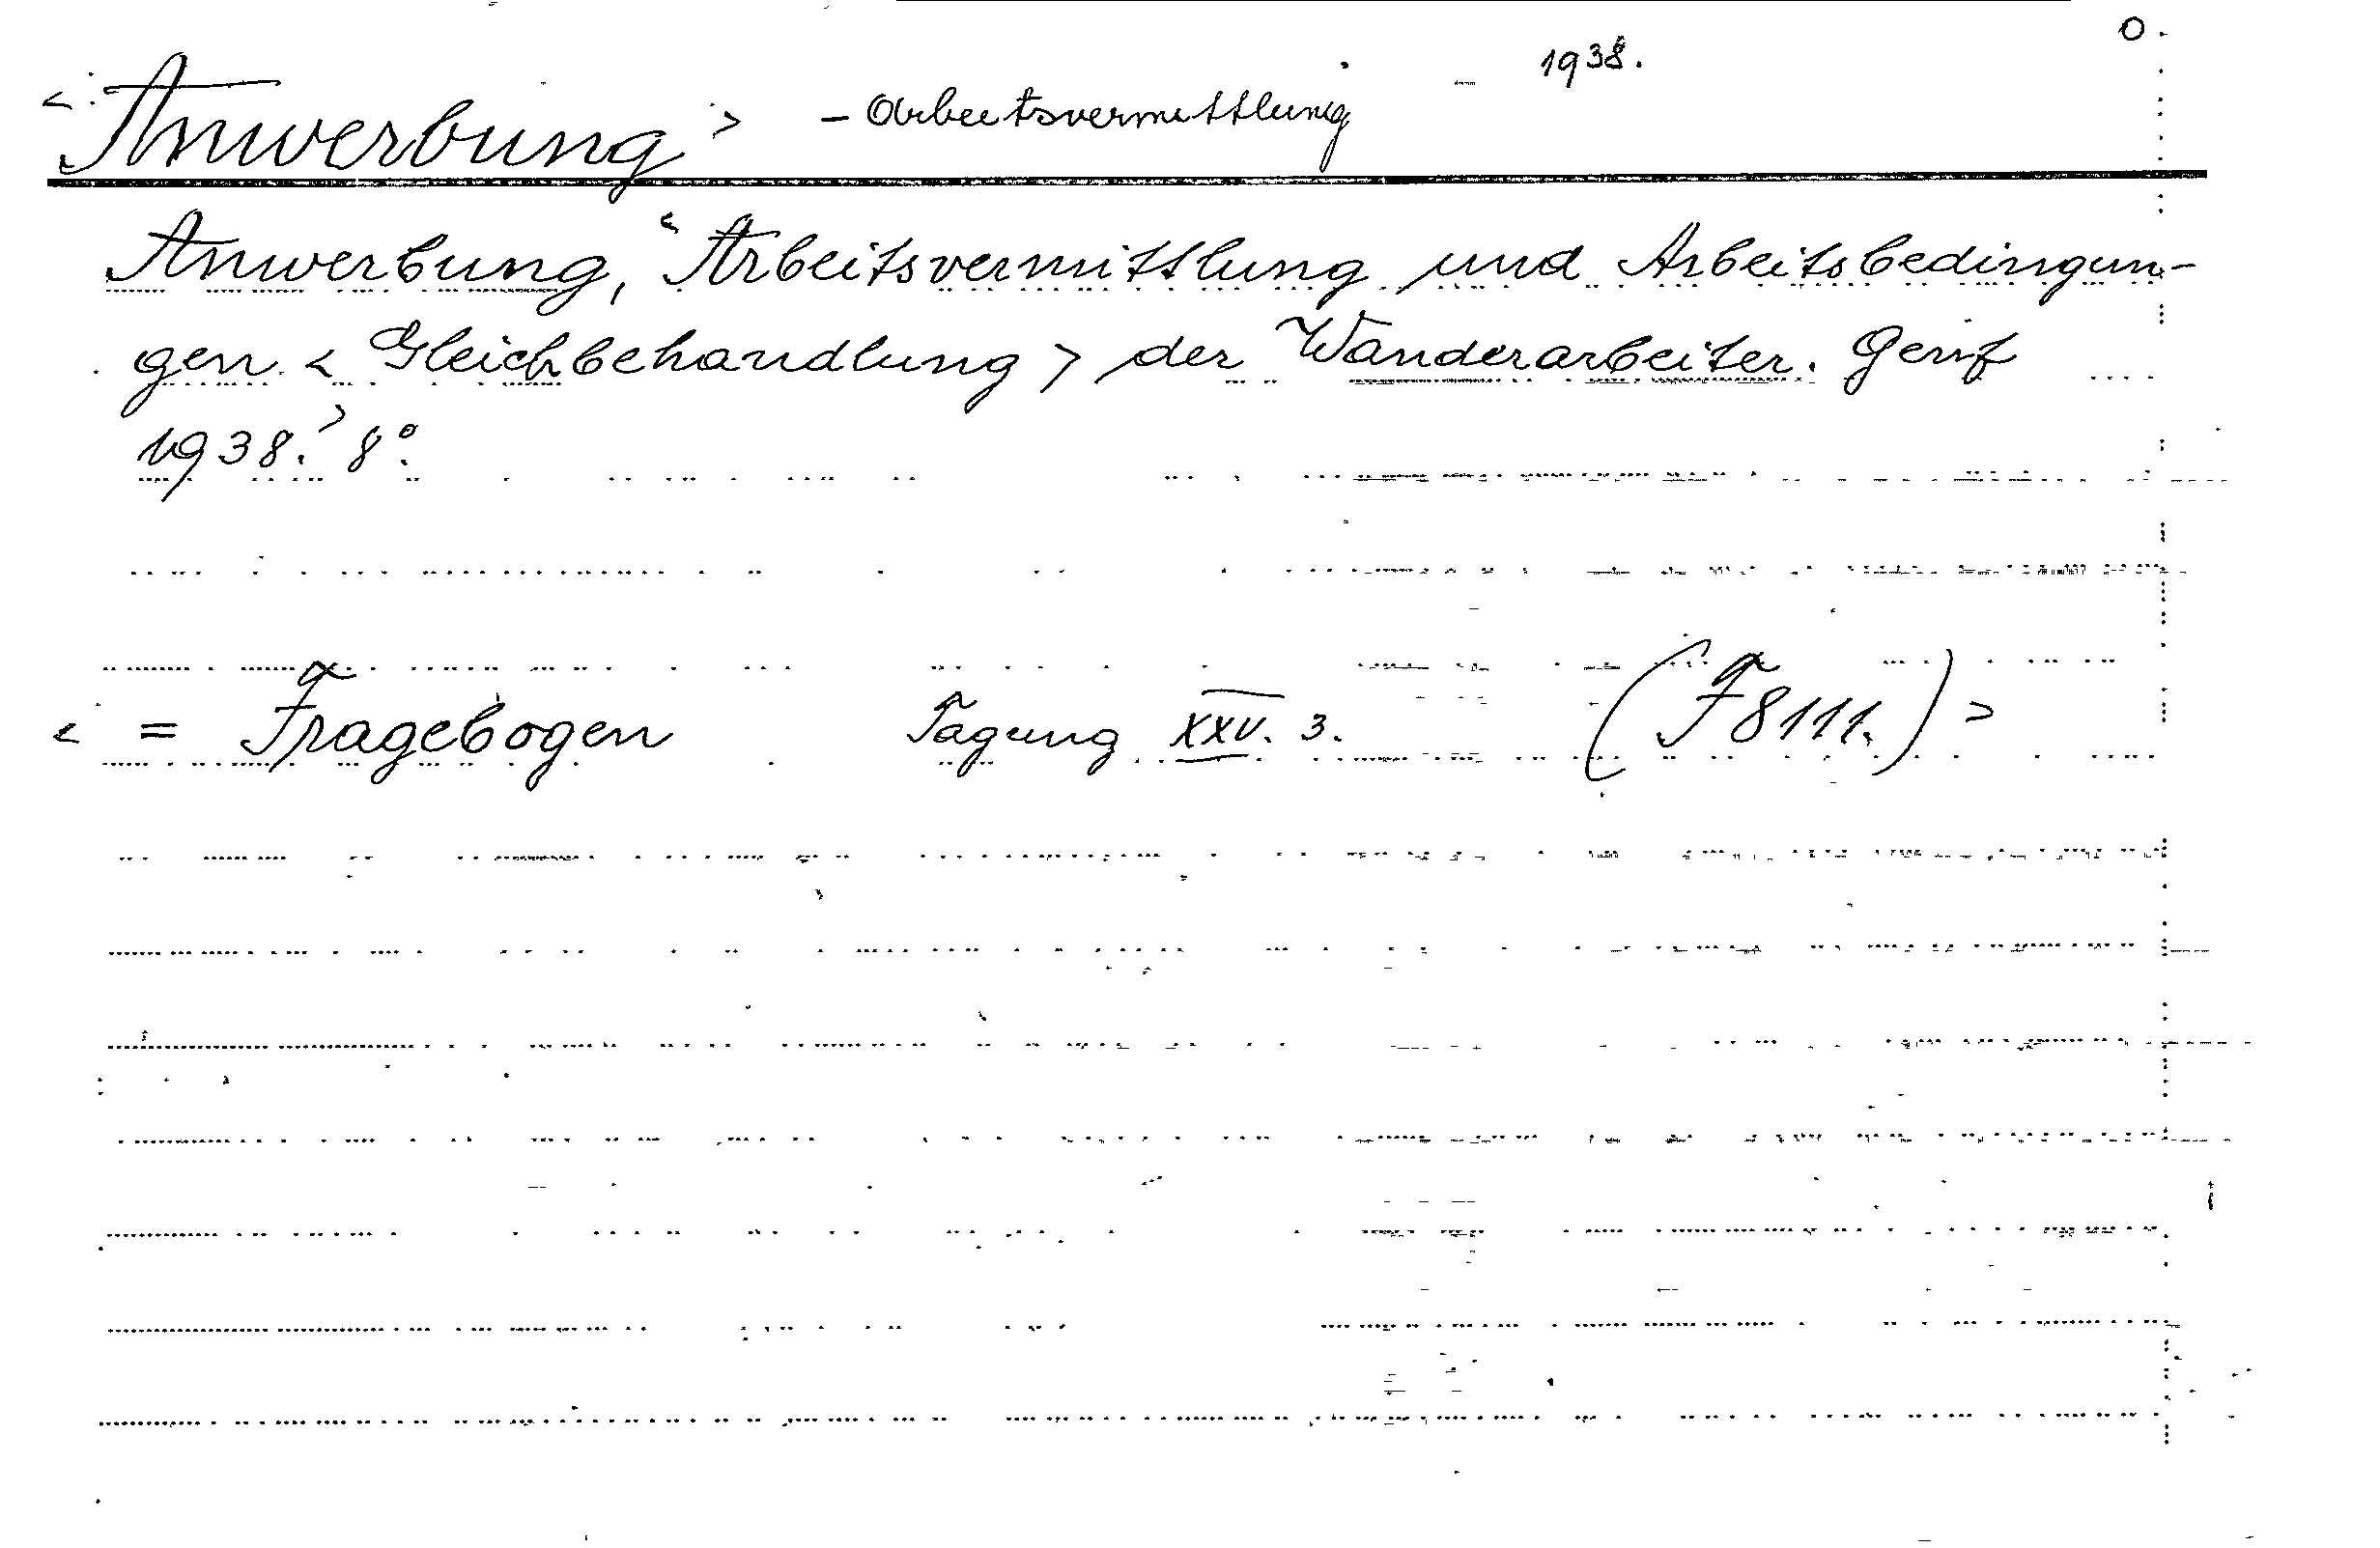 0.
1938.
< Anwerbung > - Arbeitsvermittlung
Anwerbung, < Arbeitsvermittlung und Arbeitsbedingun-
gen < Gleichbehandlung > der Wanderarbeiter. Genf
1938. > 8°.
< = Fragebogen Tagung XXV. 3. (F 8111.) >